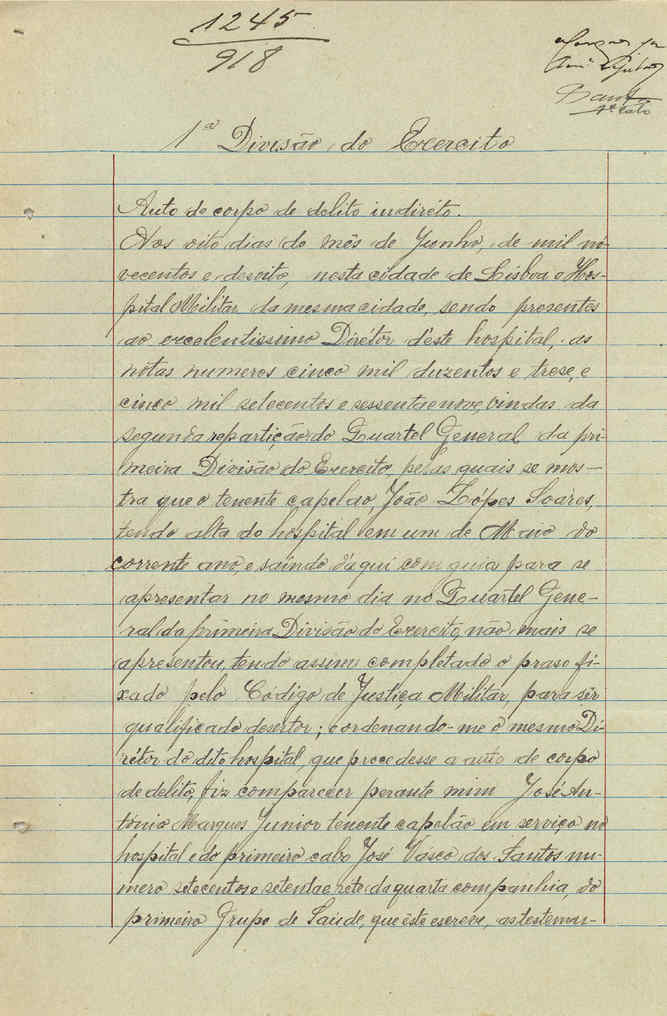 1245
918
1ª Divisão do Exercito
Auto de corpo de delito indiréto.
Aos oito dias do mês de Junho, de mil no-
vecentos e desoito, nesta cidade de Lisboa e Hos-
pital Militar da mesma cidade, sendo presentes
ao excelentissimo Dirétor d'este hospital, as
notas numeros cinco mil duzentos e trese, e
cinco mil setecentos e sessenta e nove, vindas da
segunda repartição do Quartel General da pri-
meira Divisão do Exercito, pelas quais se mos-
tra que o tenente capelão, João Lópes Soares,
tendo alta do hospital em um de Maio do
corrente ano, e saíndo d'aqui com guia para se
apresentar no mesmo dia no Quartel Gene-
ral da primeira Divisão do Exercito, não mais se
apresentou, tendo assim completado o praso fi-
xado pelo Código de Justiça Militar, para sêr
qualificado desertor; e ordenando-me o mesmo Di-
rétor do dito hospital, que procedesse a auto de corpo
de delito, fiz comparecer perante mim José An-
tónio Marques Junior tenente capelão em serviço no
hospital e do primeiro cabo José Vasco dos Santos nu-
mero setecentos e setenta e sete da quarta companhia, do
primeiro Grupo de Saúde, que êste escreve, as testemu-